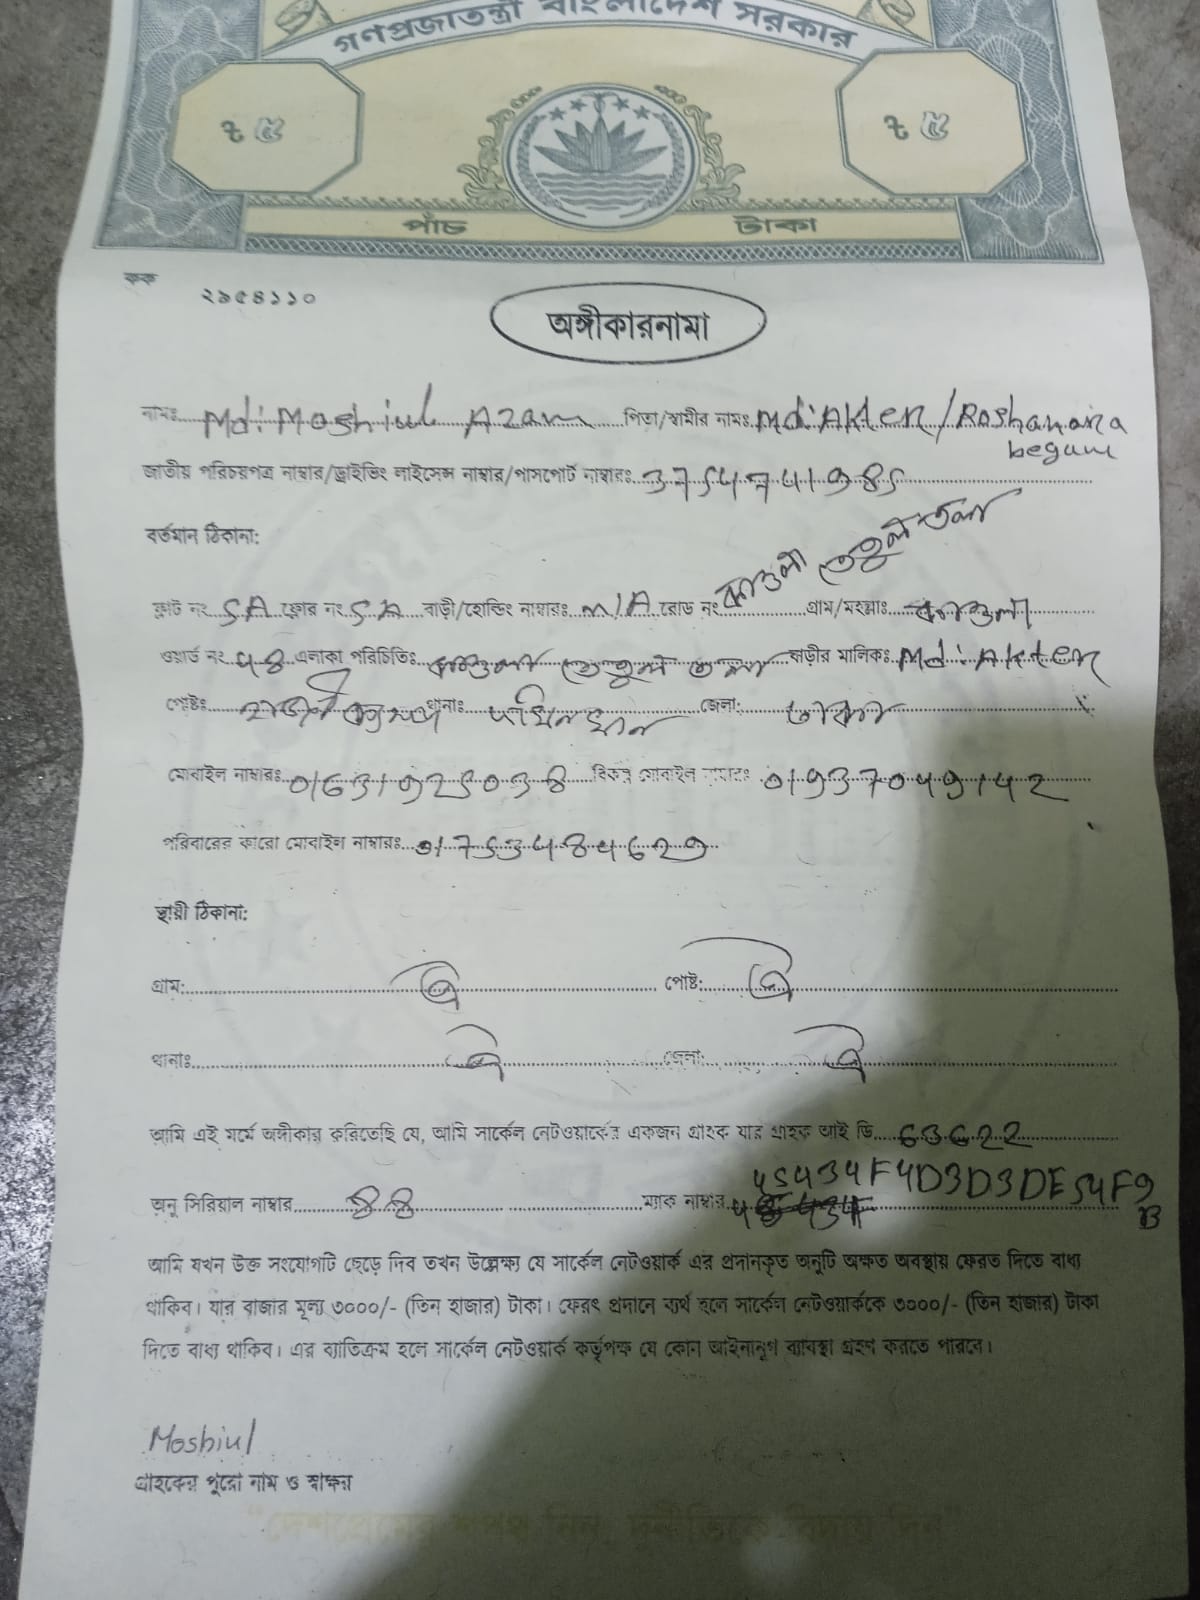 গণপ্রজাতন্ত্রী বাংলাদেশ সরকার
৳ ৫ ৳ ৫
পাঁচ টাকা
কক
২৯৫৪১১০
অঙ্গীকারনামা
নামঃ Md: Moshiul Azam পিতা/স্বামীর নামঃ Md: Akter/Roshanara
begum
জাতীয় পরিচয়পত্র নাম্বার/ড্রাইভিং লাইসেন্স নাম্বার/পাসপোর্ট নাম্বারঃ
বর্তমান ঠিকানা:
ফ্লাট নং 5A ফ্লোর নং 5A বাড়ী/হোল্ডিং নাম্বারঃ N/A রোড নং কাওলা তেতুল তলা গ্রাম/মহল্লাঃ কাওলা
ওয়ার্ড নং এলাকা পরিচিতিঃ কাওলা তেতুল তলা বাড়ীর মালিকঃ Md: Akter
পোষ্টঃ হাজী ক্যাম্প থানাঃ দক্ষিনখান জেলা: ঢাকা
মোবাইল নাম্বারঃ বিকল্প মোবাইল নাম্বারঃ 01937049142
পরিবারের কারো মোবাইল নাম্বারঃ
স্থায়ী ঠিকানা:
গ্রাম: ঐ পোষ্ট: ঐ
থানাঃ ঐ জেলা: ঐ
আমি এই মর্মে অঙ্গীকার করিতেছি যে, আমি সার্কেল নেটওয়ার্কের একজন গ্রাহক যার গ্রাহক আই ডি 63622
অনু সিরিয়াল নাম্বার ম্যাক নাম্বার
আমি যখন উক্ত সংযোগটি ছেড়ে দিব তখন উল্লেক্ষ্য যে সার্কেল নেটওয়ার্ক এর প্রদানকৃত অনুটি অক্ষত অবস্থায় ফেরত দিতে বাধ্য
থাকিব। যার বাজার মূল্য ৩০০০/- (তিন হাজার) টাকা। ফেরৎ প্রদানে ব্যর্থ হলে সার্কেল নেটওয়ার্ককে ৩০০০/- (তিন হাজার) টাকা
দিতে বাধ্য থাকিব। এর ব্যতিক্রম হলে সার্কেল নেটওয়ার্ক কর্তৃপক্ষ যে কোন আইনানুগ ব্যাবস্থা গ্রহণ করতে পারবে।
Moshiul
গ্রাহকের পুরো নাম ও স্বাক্ষর
"দেশপ্রেমের শপথ নিন, দুর্নীতিকে বিদায় দিন"